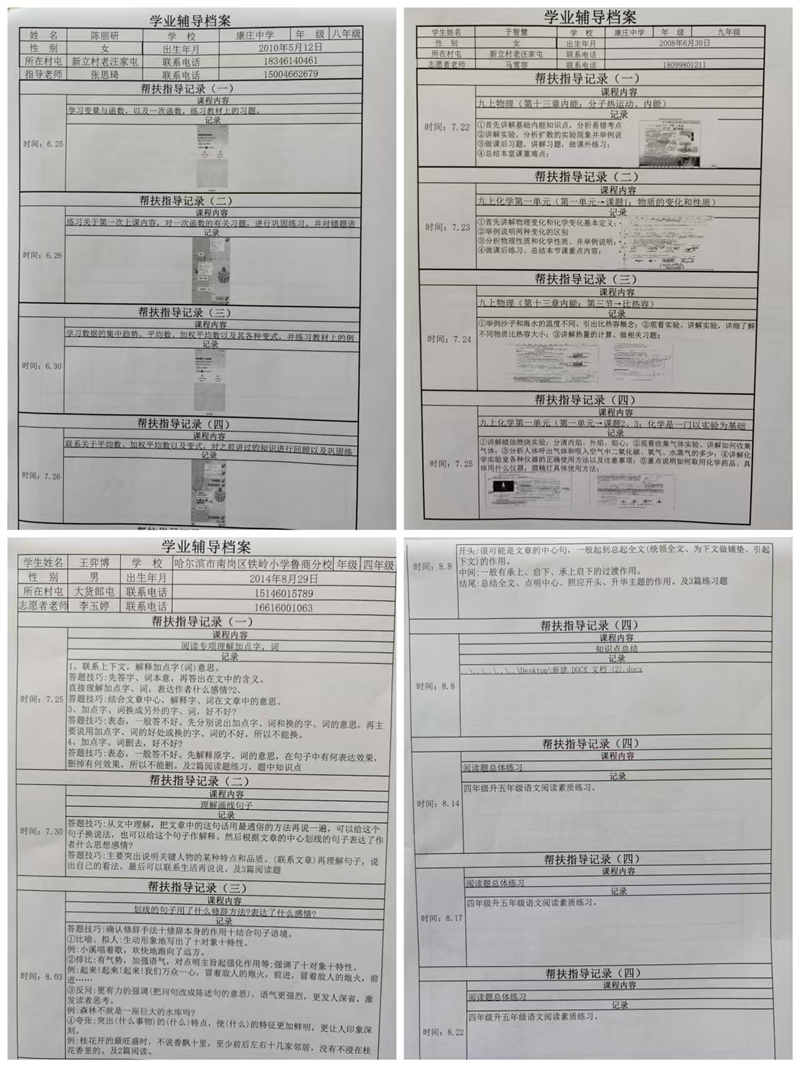 学业辅导档案
姓 名 陈丽研 学 校 康庄中学 年 级 八年级
性 别 女 出生年月 2010年5月12日
所在村屯 新立村老汪家屯 联系电话 18346140461
指导老师 张思琦 联系电话 15004662679
帮扶指导记录（一）
课程内容
学习变量与函数，以及一次函数，练习教材上的习题。
记录
时间：6.25
帮扶指导记录（二）
课程内容
练习关于第一次上课内容，对一次函数的有关习题，进行巩固练习。并对错题进
记录
时间：6.26
帮扶指导记录（三）
课程内容
学习数据的集中趋势，平均数、加权平均数以及其各种变式，并练习教材上的例
记录
时间：6.30
帮扶指导记录（四）
课程内容
联系关于平均数、加权平均数以及变式，对之前讲过的知识进行回顾以及巩固练
记录
时间：7.26
学业辅导档案
学生姓名 于智慧 学 校 康庄中学 年 级 九年级
性 别 女 出生年月 2008年6月30日
所在村屯 新立村老汪家屯 联系电话
志愿者老师 马雪容 联系电话 18099801211
帮扶指导记录（一）
课程内容
九上物理（第十三章内能：分子热运动、内能）
记录
时间：7.22
①首先讲解基础内能知识点，分析易错考点
②讲解实验，分析扩散的实验现象并举例说
③做课后习题，讲解习题，做课外练习；
④总结本堂课重难点；
帮扶指导记录（二）
课程内容
九上化学第一单元（第一单元→课题1：物质的变化和性质）
记录
时间：7.23
①首先讲解物理变化和化学变化基本定义；
②举例说明两种变化的区别
③分析物理性质和化学性质、并举例说明；
④做课后练习、总结本节课重点内容；
帮扶指导记录（三）
课程内容
九上物理（第十三章内能：第三节→比热容）
记录
时间：7.24
①举例沙子和海水的温度不同、引出比热容概念；②观看实验、讲解实验，详细了解
不同物质比热容大小；③讲解热量的计算、做相关习题；
帮扶指导记录（四）
课程内容
九上化学第一单元（第一单元→课题2、3：化学是一门以实验为基础
记录
时间：7.25
①讲解蜡烛燃烧实验；分清内焰、外焰、焰心；②观看收集气体实验、讲解如何收集
气体；③分析人体呼出气体和吸入空气中二氧化碳、氧气、水蒸气的多少；④讲解化
学实验室各种仪器的正确使用方法以及注意事项；⑤重点说明如何取用化学药品、具
体用什么仪器，酒精灯具体使用方法；
学业辅导档案
学生姓名 王弈博 学 校 哈尔滨市南岗区铁岭小学鲁商分校 年级 四年级
性 别 男 出生年月 2014年8月29日
所在村屯 大货郎屯 联系电话 15146015789
志愿者老师 李玉婷 联系电话 16616001063
帮扶指导记录（一）
课程内容
阅读专项理解加点字，词
记录
时间：7.25
1、联系上下文，解释加点字(词)意思。
答题技巧:先答字、词本意，再答出在文中的含义。
直接理解加点字、词，表达作者什么感情?2、
答题技巧:结合文章中心，解释字、词在文章中的意思。
3、加点字、词换成另外的字、词，好不好?
答题技巧:表态，一般答不好。先分别说出加点字、词和换的字、词的意思，再主
要说用加点字、词的好处或换的字、词的不好，所以不能换。
4、加点字、词删去，好不好?
答题技巧:表态，一般答不好。先解释原字、词的意思，在句子中有何表达效果，
删掉有何效果，所以不能删。及2篇阅读题练习，题中知识点
帮扶指导记录（二）
课程内容
理解画线句子
记录
时间：7.30
答题技巧:从文中理解，把文章中的这句话用最通俗的方法再说一遍，可以给这个
句子换说法，也可以给这个句子作解释。然后根据文章的中心划线的句子表达了作
者什么思想感情?
答题技巧:主要突出说明关键人物的某种特点和品质。(联系文章)再理解句子，说
出自己的看法，最后可以联系生活再说说。及3篇阅读题
帮扶指导记录（三）
课程内容
划线的句子用了什么修辞方法?表达了什么感情?
记录
时间：8.03
答题技巧:确认修辞手法十修辞本身的作用十结合句子语境。
①比喻、拟人:生动形象地写出了十对象十特性。
例:小溪唱着歌，欢快地跑向了远方。
②排比:有气势，加强语气，对点明主旨起强化作用等;强调了十对象十特性。
例:起来!起来!起来!我们万众一心，冒着敌人的炮火，前进，冒着敌人的炮火，前
进……
③反问:更有力的强调(把问句改成陈述句的意思)，语气更强烈，更发人深省，激
发读者思考。
例:森林不就是一座巨大的水库吗?
④夸张:突出(什么事物)的(什么)特点，使(什么)的特征更加鲜明，更让人印象深
刻。
例:桂花开的最旺盛时，不说香飘十里，至少前后左右十几家邻居，没有不浸在桂
花香里的。及2篇阅读。
时间：8.8
开头:很可能是文章的中心句，一般起到总起全文(统领全文、为下文做铺垫、引起
下文)的作用。
中间:一般有承上、启下、承上启下的过渡作用。
结尾:总结全文、点明中心、照应开头、升华主题的作用。及3篇练习题
帮扶指导记录（四）
课程内容
知识点总结
记录
时间：8.8
..\..\..\..\..\Desktop\新建 DOCX 文档 (2).docx
帮扶指导记录（四）
课程内容
阅读题总体练习
记录
时间：8.14
四年级升五年级语文阅读素质练习。
帮扶指导记录（四）
课程内容
阅读题总体练习
记录
时间：8.17
四年级升五年级语文阅读素质练习。
帮扶指导记录（四）
课程内容
阅读题总体练习
记录
时间：8.22
四年级升五年级语文阅读素质练习。